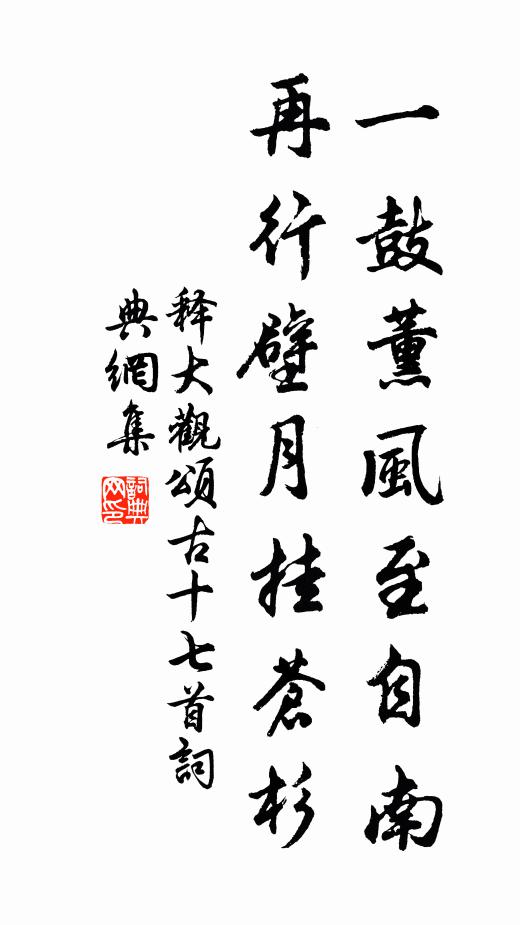 一鼓薰風至自南
再行壁月挂蒼杉
释大觀頌古十七首詞
典網集
詞典網印